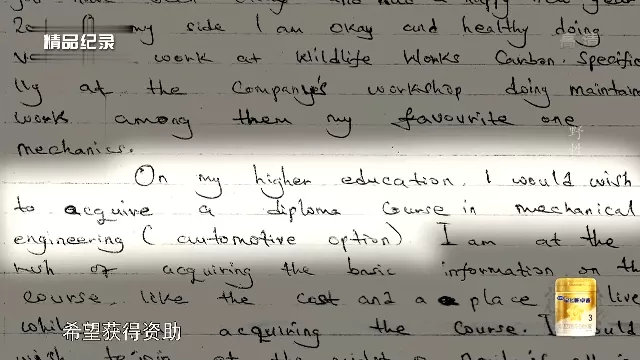 精品纪录
my side I am okay and healthy doing
work at Wildlife Works Carbon. Specific
lly at the Company's workshop doing maintain
work among them my favourite one
mechanics.
On my higher education, I would wish
to acquire a diploma course in mechanical
engineering (automotive option) I am at the
rush of acquiring the basic information on the
course, like the cost and a place live
while acquiring the course. I would
希望获得资助
3